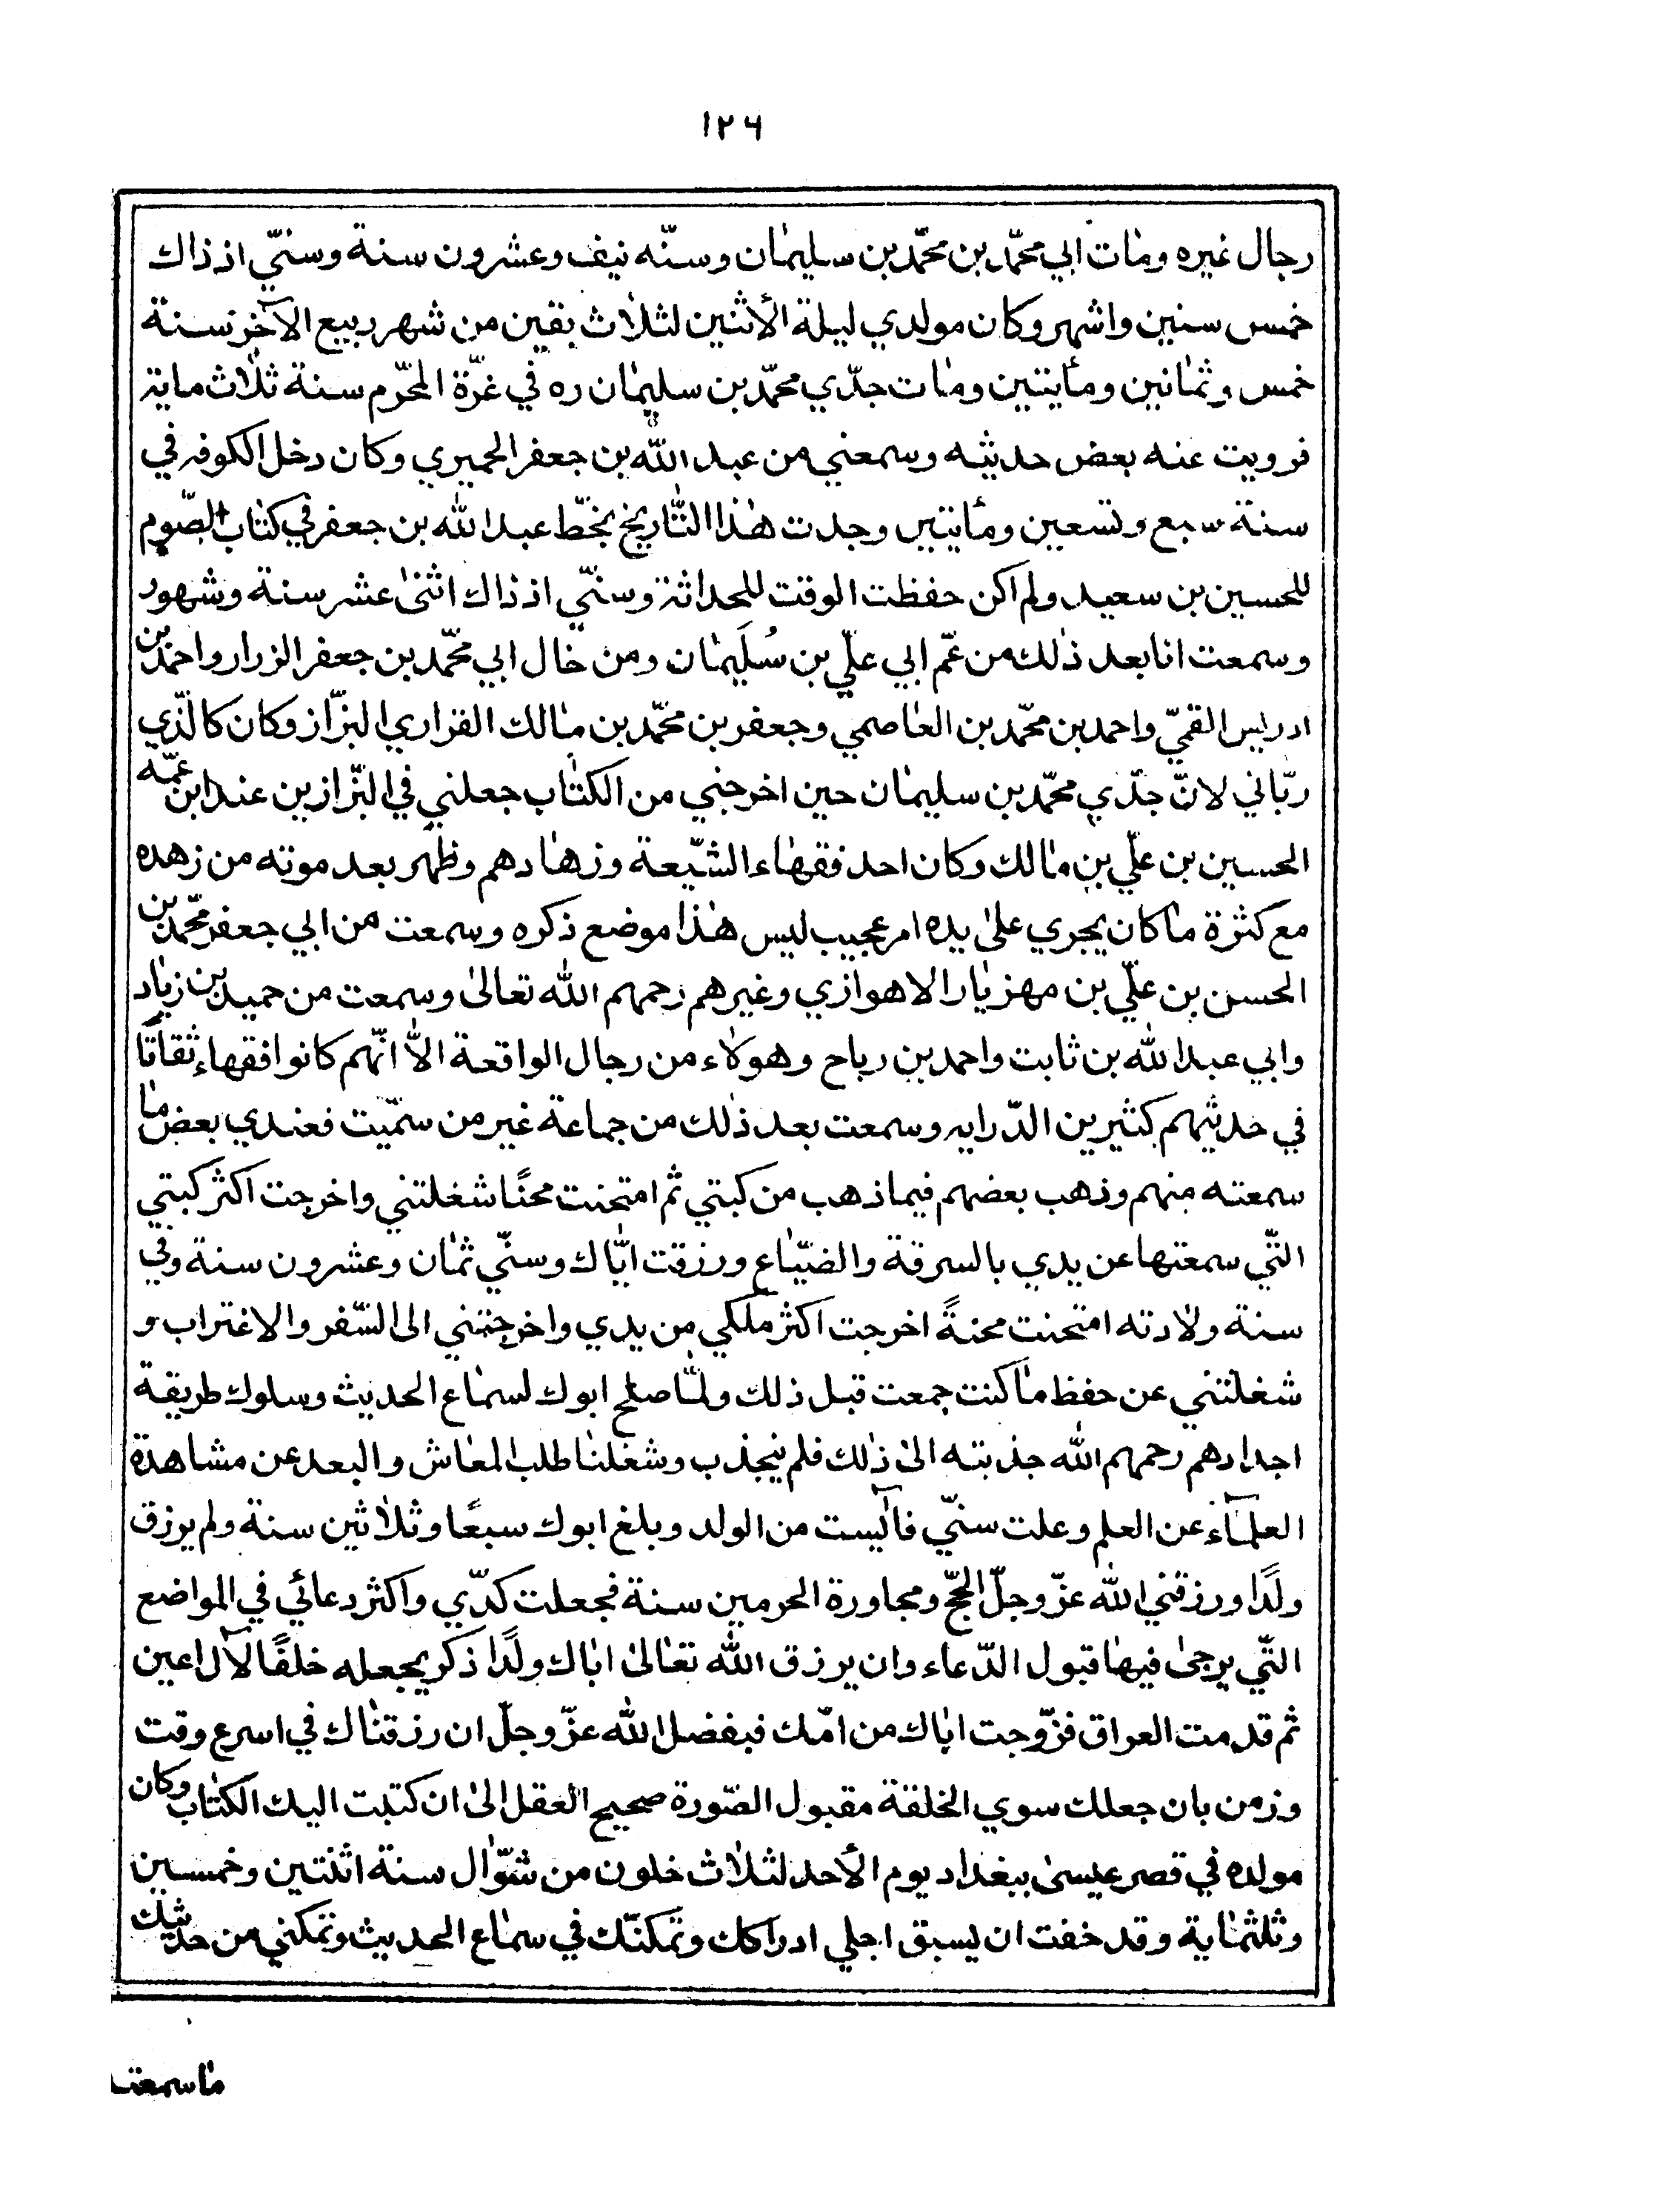 ١٢٦
رجال غيره ومات ابي محمّد بن محمّد بن سليمان وسنّه نيف وعشرون سنة وسنّي اذ ذاك
خمس سنين واشهر وكان مولدي ليلة الأثنين لثلاث بقين من شهر ربيع الآخر سنة
خمس وثمانين ومأيتين ومات جدّي محمّد بن سليمان ره في غرّة المحرّم سنة ثلاث ماية
فرويت عنه بعض حديثه وسمعني من عبد الله بن جعفر الحميري وكان دخل الكوفه في
سنة سبع وتسعين ومأيتين وجدت هذا التّاريخ بخطّ عبد الله بن جعفر في كتاب الصّوم
للحسين بن سعيد ولم اكن حفظت الوقت للحداثة وسنّي اذ ذاك اثنى عشر سنة وشهور
وسمعت انا بعد ذلك من عّم ابي علّي بن سُلَيمان ومن خال ابي محّمد بن جعفر الزرار واحمد بن
ادريس القمّي واحمد بن محّمد بن العاصمي وجعفر بن محّمد بن مالك الفزاري البزّاز وكان كالّذي
ربّاني لانّ جدّي محمّد بن سليمان حين اخرجني من الكتاب جعلني في البّزازين عند ابن عمّه
الحسين بن علّي بن مالك وكان احد فقهاء الشّيعة وزهادهم وظهر بعد موته من زهده
مع كثرة ما كان يجري على يده امر عجيب ليس هذا موضع ذكره وسمعت من ابي جعفر محّمد بن
الحسن بن علّي بن مهزيار الاهوازي وغيرهم رحمهم الله تعالى وسمعت من حميد بن زياد
وابي عبد الله بن ثابت واحمد بن رباح وهولاء من رجال الواقعة الاّ انّهم كانوا فقهاء ثقاتًا
في حديثهم كثيرين الدّرايه وسمعت بعد ذلك من جماعة غير من سمّيت فعندي بعض ما
سمعته منهم وذهب بعضهم فيما ذهب من كبتي ثم امتحنت محنًا شغلتني واخرجت اكثر كبتي
التّي سمعتها عن يدي بالسرقة والضيّاع ورزقت ابّاك وسنّي ثمان وعشرون سنة وفي
سنة ولادته امتحنت محنةً اخرجت اكثر ملكي من يدي واخرجتني الى السّفر والاغتراب و
شغلتني عن حفظ ما كنت جمعت قبل ذلك ولمّا صلح ابوك لسماع الحديث وسلوك طريقة
اجدادهم رحمهم الله جذبته الى ذلك فلم ينجذب وشغلنا طلب المعاش والبعد عن مشاهدة
العلمآء عن العلم وعلت سنّي فآيست من الولد وبلغ ابوك سبعًا وثلاثين سنة ولم يرزق
ولدًا ورزقني الله عزّ وجلّ الحجّ ومجاورة الحرمين سنة فجعلت كدّي واكثر دعائي في المواضع
التّي يرجى فيها قبول الدّعاء وان يرزق الله تعالى اباك ولدًا ذكر يجعله خلفًا لآل اعين
ثم قدمت العراق فزّوجت اباك من امّك فبفضل الله عزّ وجلّ ان رزقناك في اسرع وقت
وزمن بان جعلك سوي الخلقة مقبول الصّورة صحيح العقل الى ان كتبت اليك الكتاب وكان
مولده في قصر عيسى ببغداد يوم الأحد لثلاث خلون من شوّال سنة اثنتين وخمسين
وثلثماية وقد خفت ان يسبق اجلي ادراكك وتمكنّك في سماع الحديث وتمكني من حديثك
ما سمعته